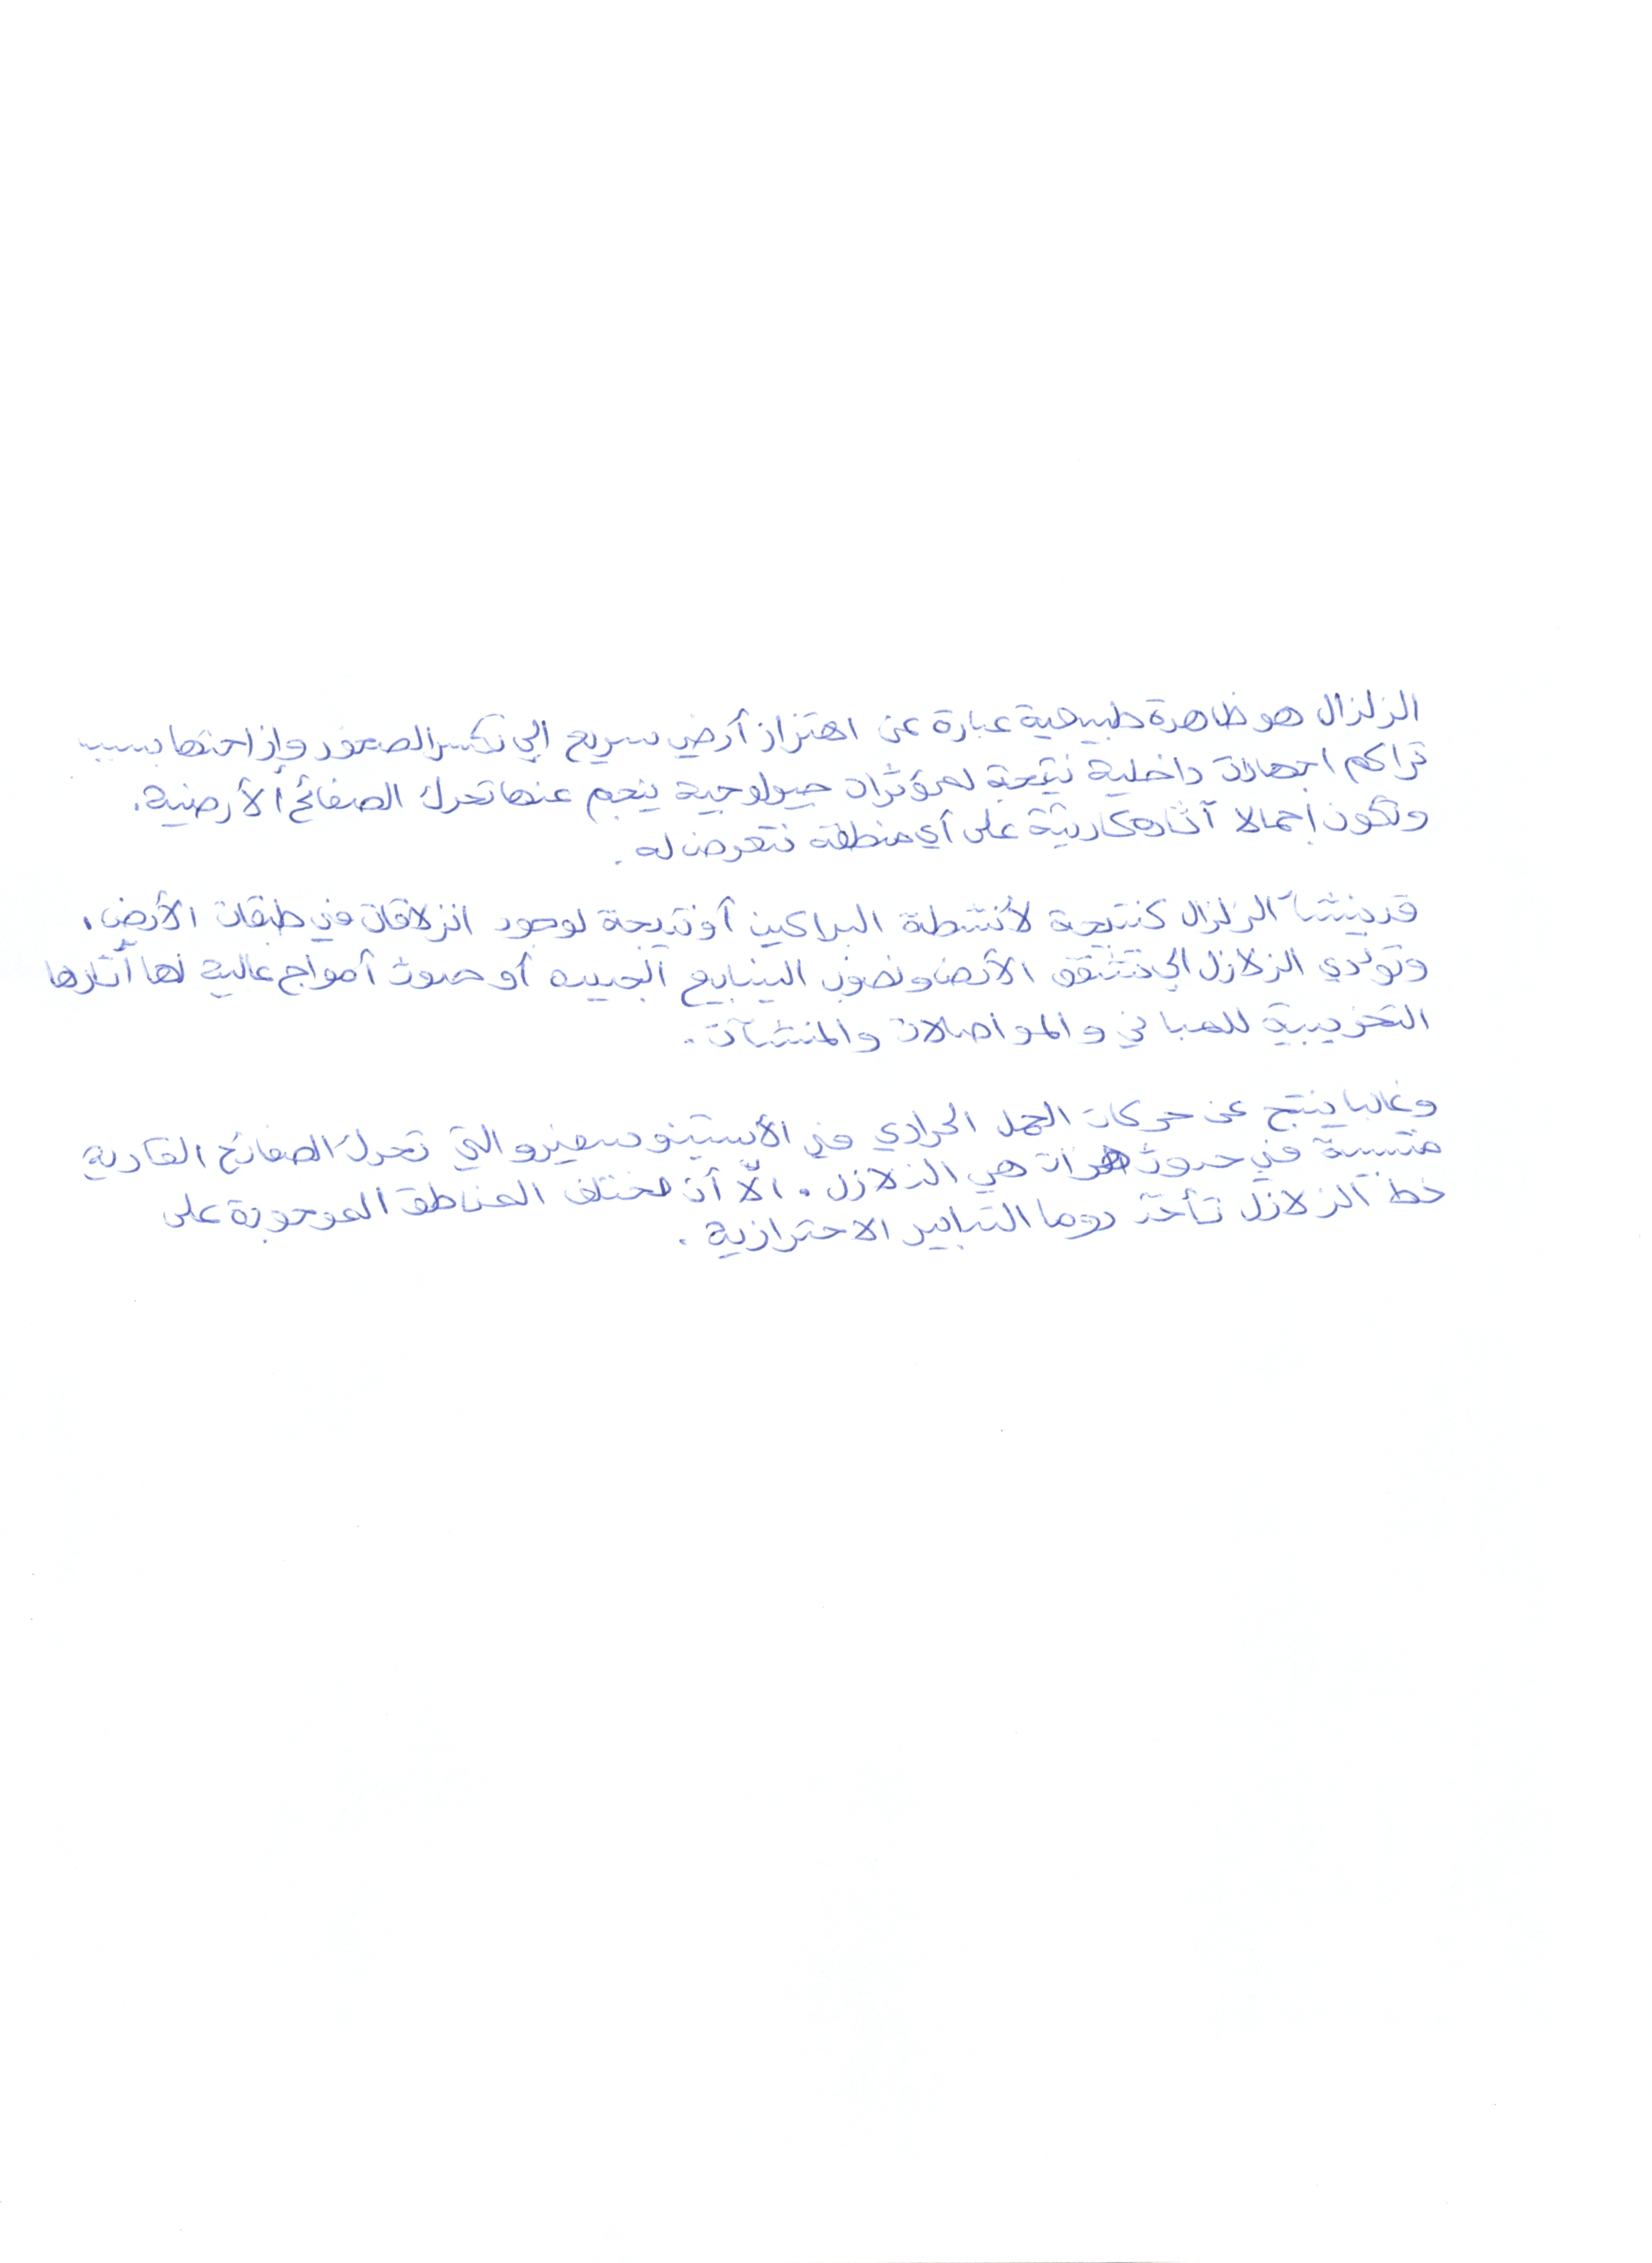 الزلزال هو ظاهرة طبيعية عبارة عن اهتزاز أرضي سريع إلى تكسر الصخور وإزاحتها بسبب
تراكم اجهادات داخلية نتيجة لمؤثرات جيولوجية ينجم عنها تحرك الصفائح الأرضية.
وتكون إجمالا آثاره كارثية على أي منطقة تتعرض له.
قد ينشأ الزلزال كنتيجة لأنشطة البراكين أو نتيجة لوجود انزلاقات في طبقات الأرض.
وتؤدي الزلازل إلى تشقق الأرض ونضوب الينابيع الجديده أو حدوث أمواج عالية لها أثارها
التخريبية للمباني والمواصلات والمنشآت.
وغالبا ينتج عن حركات الحمل الحراري في الأستينوسفير والتي تحرك الصفائح القارية
متسببة في حدوث هزات هي الزلازل. الّا أن مختلف المناطق الموجودة على
خط الزلازل تأخذ دوما التدابير الاحترازية.